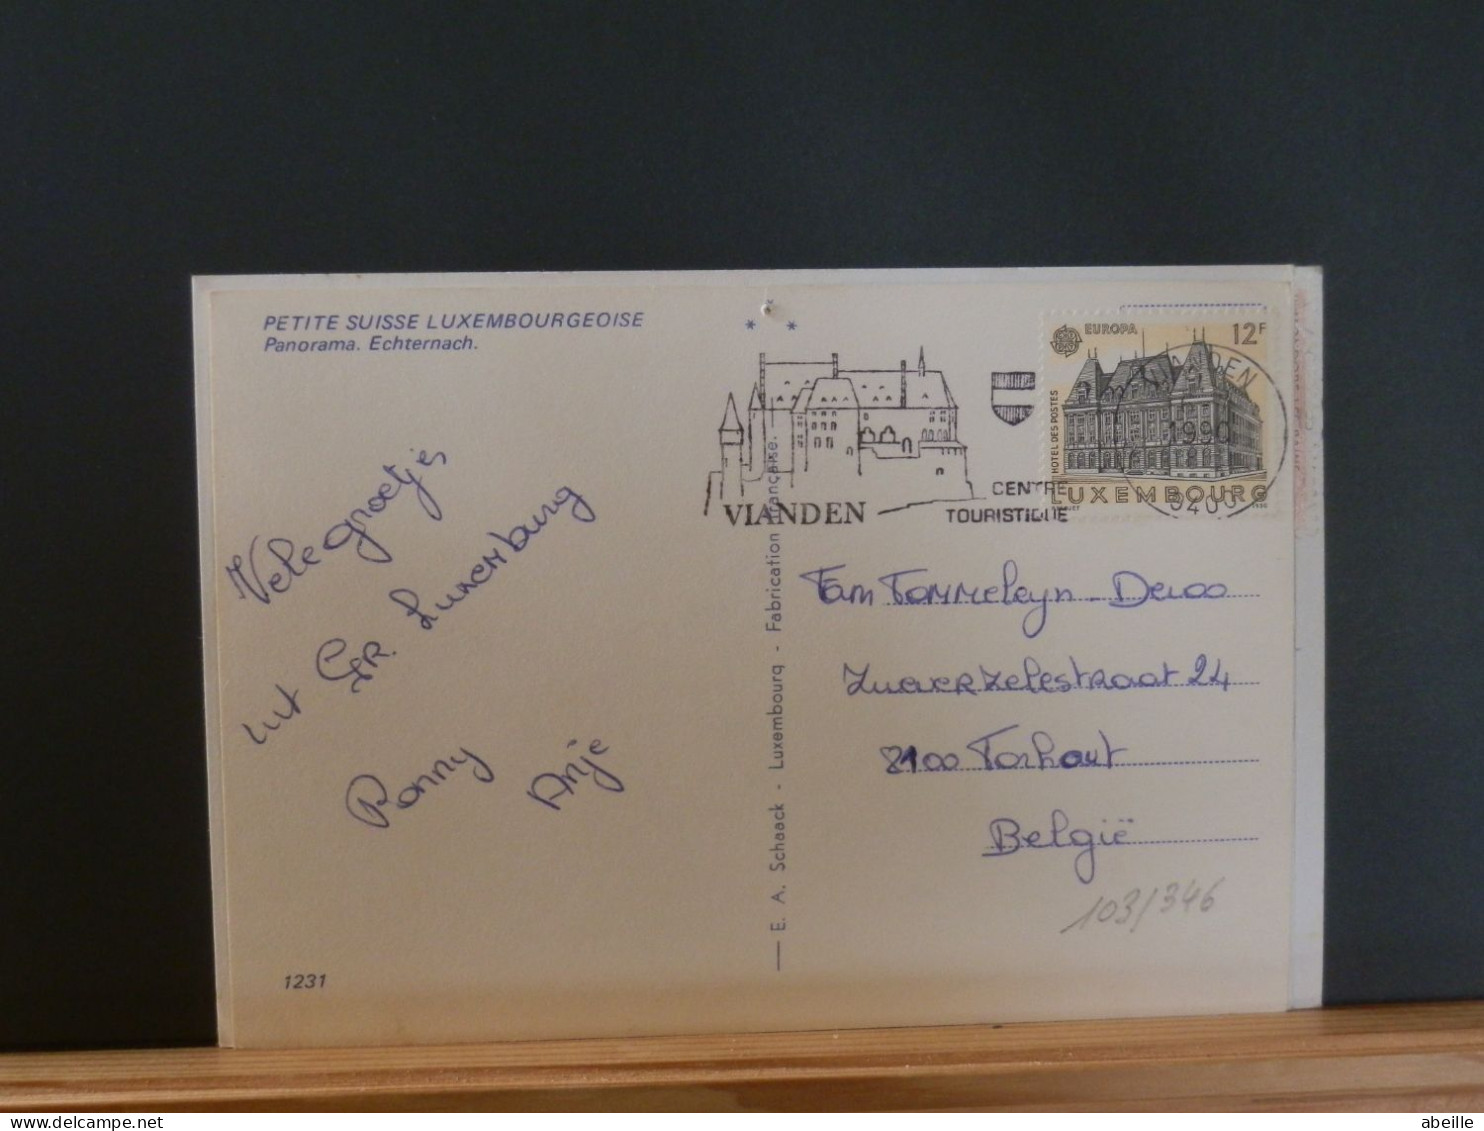 PETITE SUISSE LUXEMBOURGEOISE
Panorama. Echternach.
Vele groetjes
uit Gr. Luxemburg
Ronny Anje
1231
E. A. Schaack - Luxembourg - Fabrication française.
VIANDEN
CENTRE
TOURISTIQUE
EUROPA 12F
HOTEL DES POSTES
LUXEMBOURG
1990
VIANDEN
1990
Fam Tommeleyn - Devoo
8100 Torhout
België
103/346
abeille
delcampe.net